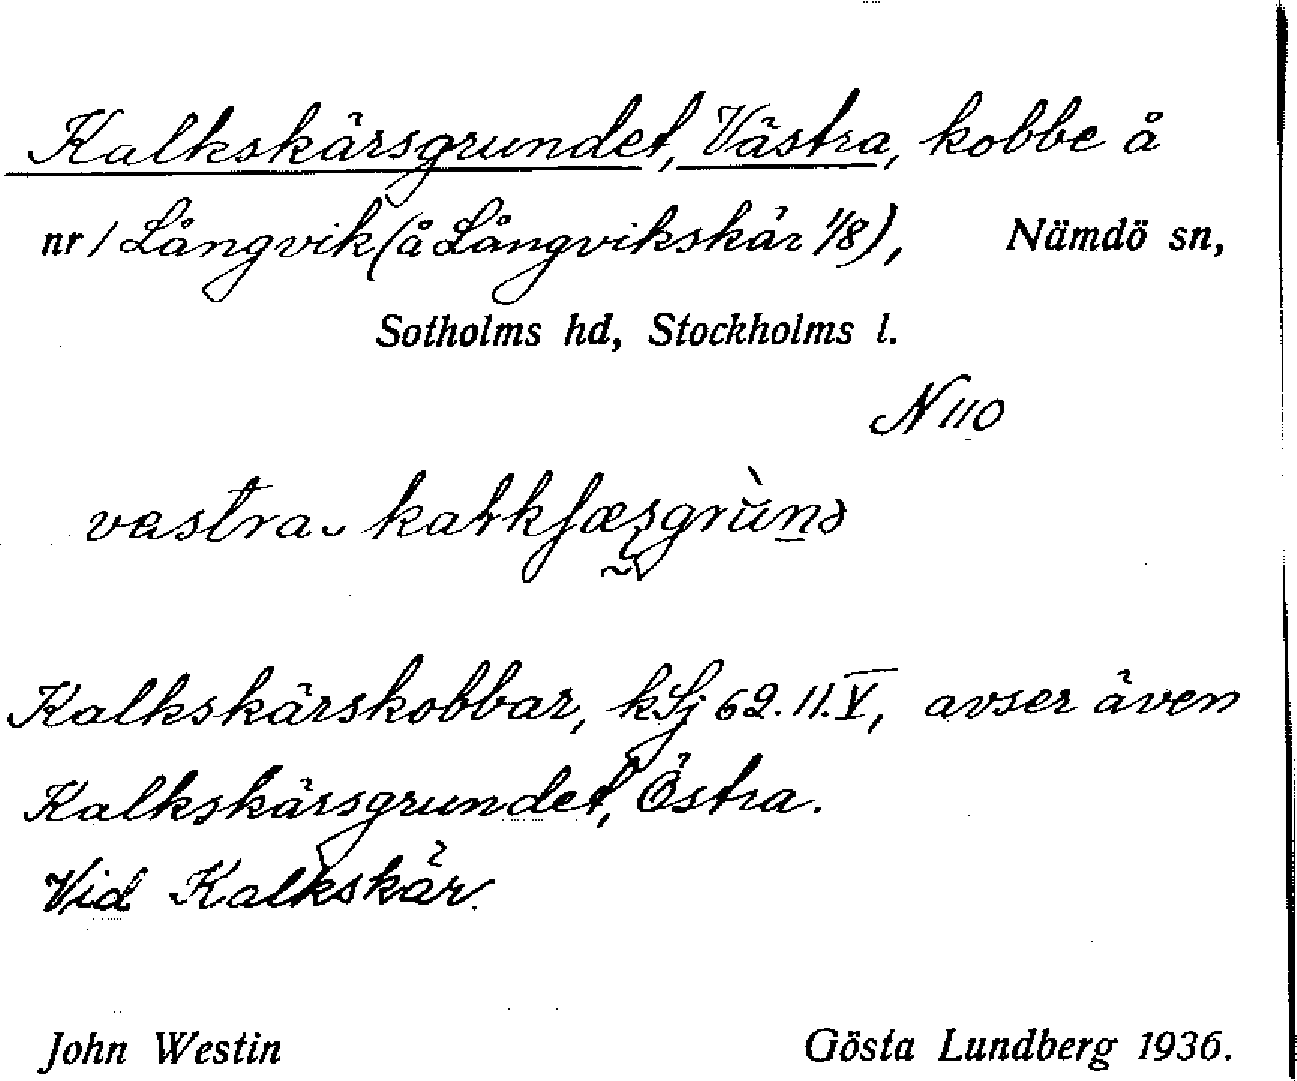 Kalkskärsgrundet, Västra, kobbe å
nr 1 Långvik (å Långvikskär 1/8), Nämdö sn,
Sotholms hd, Stockholms l.
N 110
Kalkskärskobbar, kSj 62.11.V, avser även
Kalkskärsgrundet, Östra.
Vid Kalkskär.
John Westin Gösta Lundberg 1936.